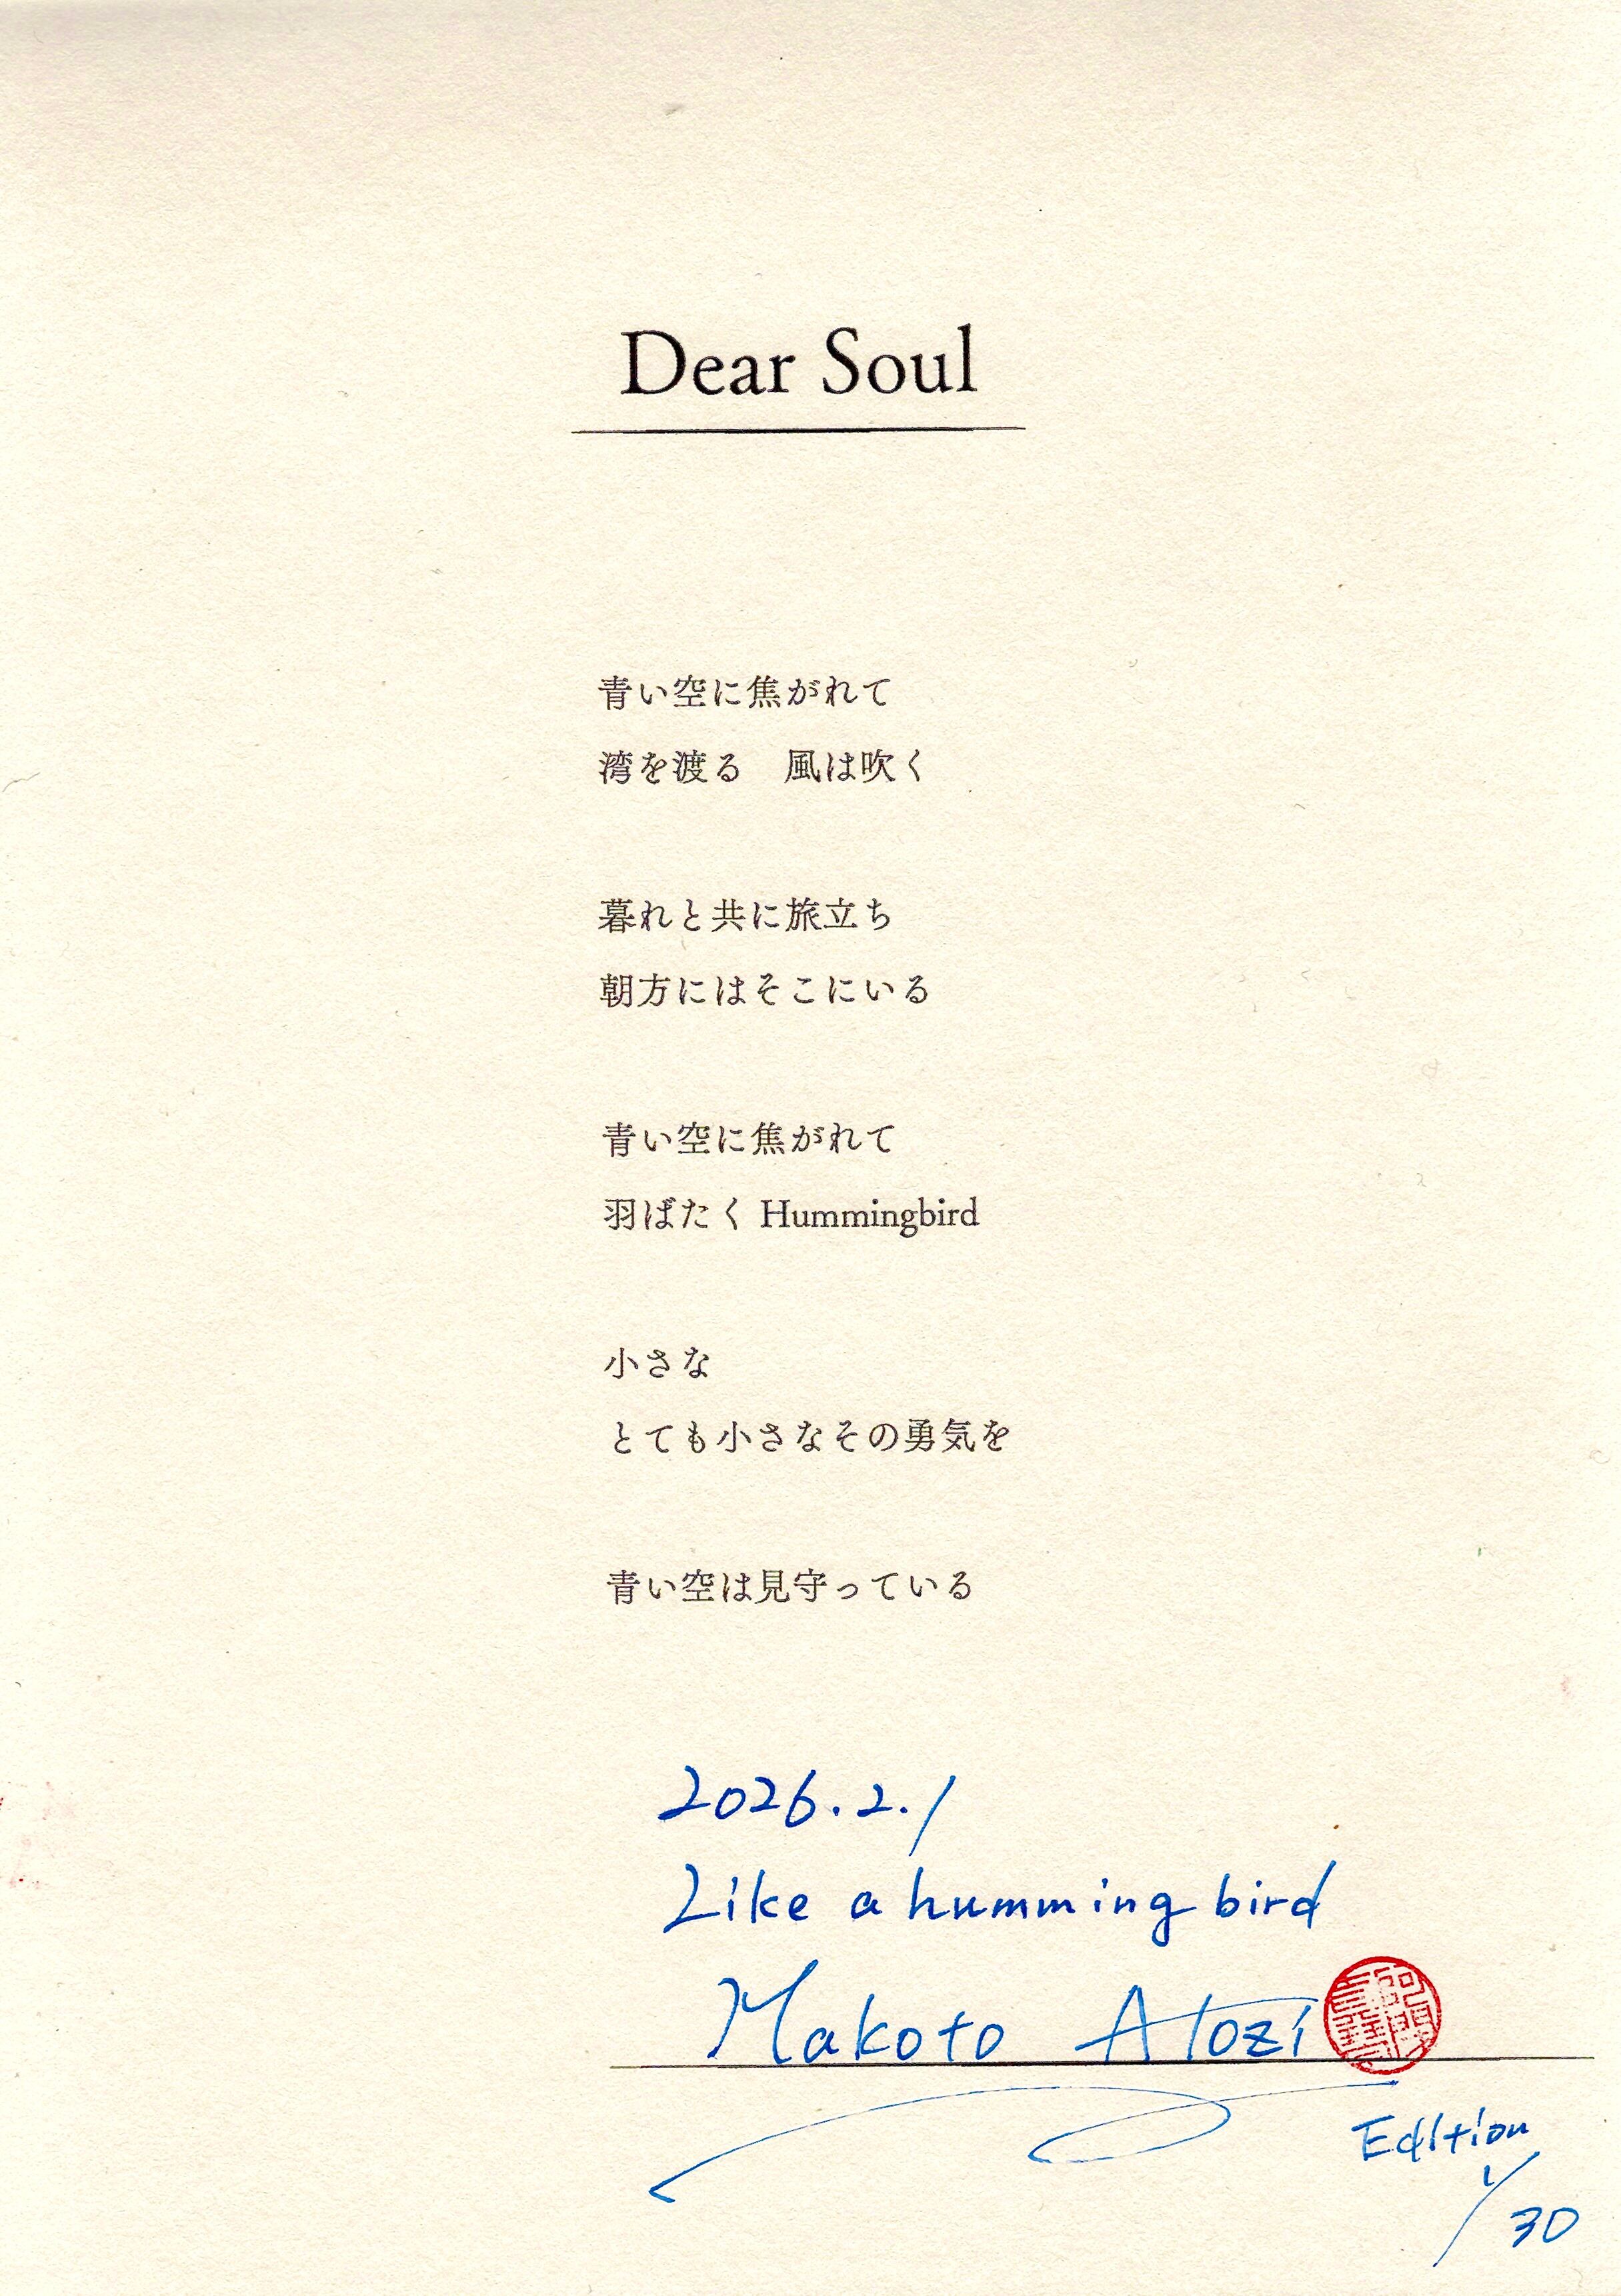 Dear Soul
青い空に焦がれて
湾を渡る　風は吹く
暮れと共に旅立ち
朝方にはそこにいる
青い空に焦がれて
羽ばたく Hummingbird
小さな
とても小さなその勇気を
青い空は見守っている
2026.2.1
Like a humming bird
Makoto Atozi
Edition
1/30